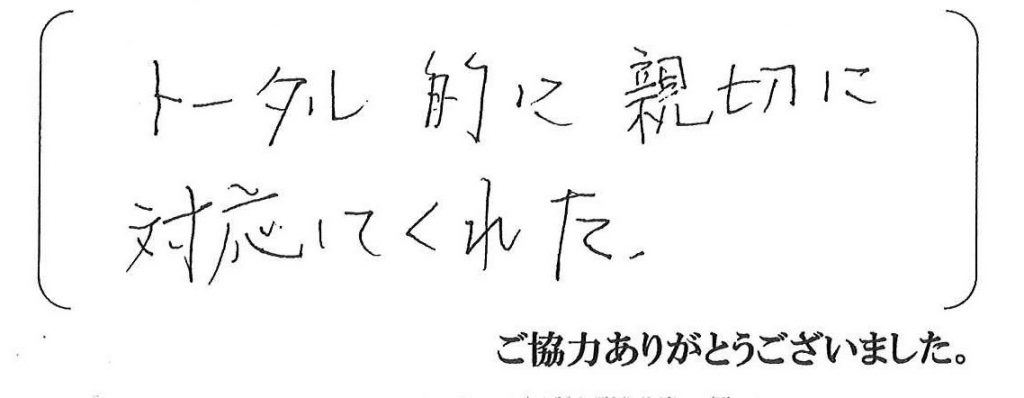 トータル的に親切に
対応してくれた.
ご協力ありがとうございました。